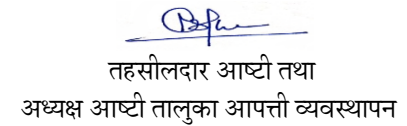 तहसीलदार आष्टी तथा
अध्यक्ष आष्टी तालुका आपत्ती व्यवस्थापन